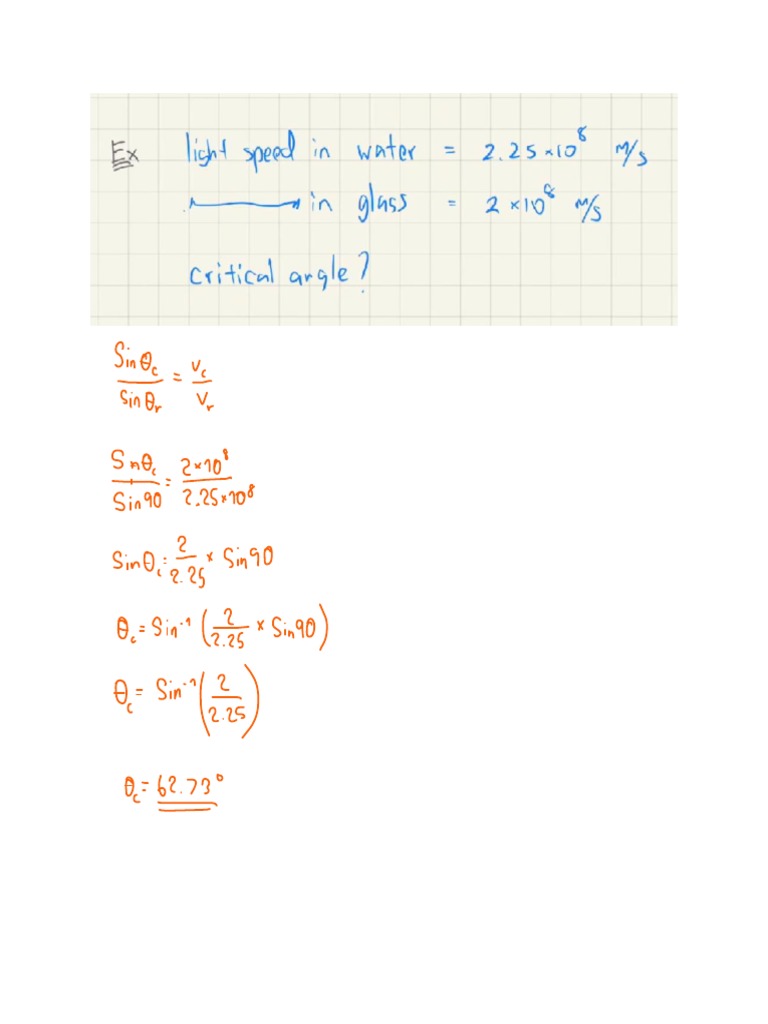 Ex light speed in water = 2.25×10⁸ m/s
in glass = 2×10⁸ m/s
critical angle?
Sinθc / sinθr = vc / vr
Sinθc / Sin90 = 2×10⁸ / 2.25×10⁸
Sinθc = 2 / 2.25 × Sin90
θc = Sin⁻¹(2 / 2.25 × Sin90)
θc = Sin⁻¹(2 / 2.25)
θc = 62.73°